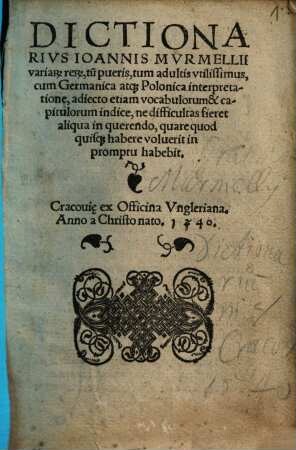 DICTIONA
RIVS IOANNIS MVRMELLII
variaꝝ reꝝ, tū pueris, tum adultis vtilissimus,
cum Germanica atqꝫ Polonica interpreta-
tione, adiecto etiam vocabulorum & ca-
pitulorum indice, ne difficultas fieret
aliqua in querendo, quare quod
quisqꝫ habere voluerit in
promptu habebit.
Cracouię ex Officina Vngleriana.
Anno a Christo nato. 1540.
Murmelly
Dictiona